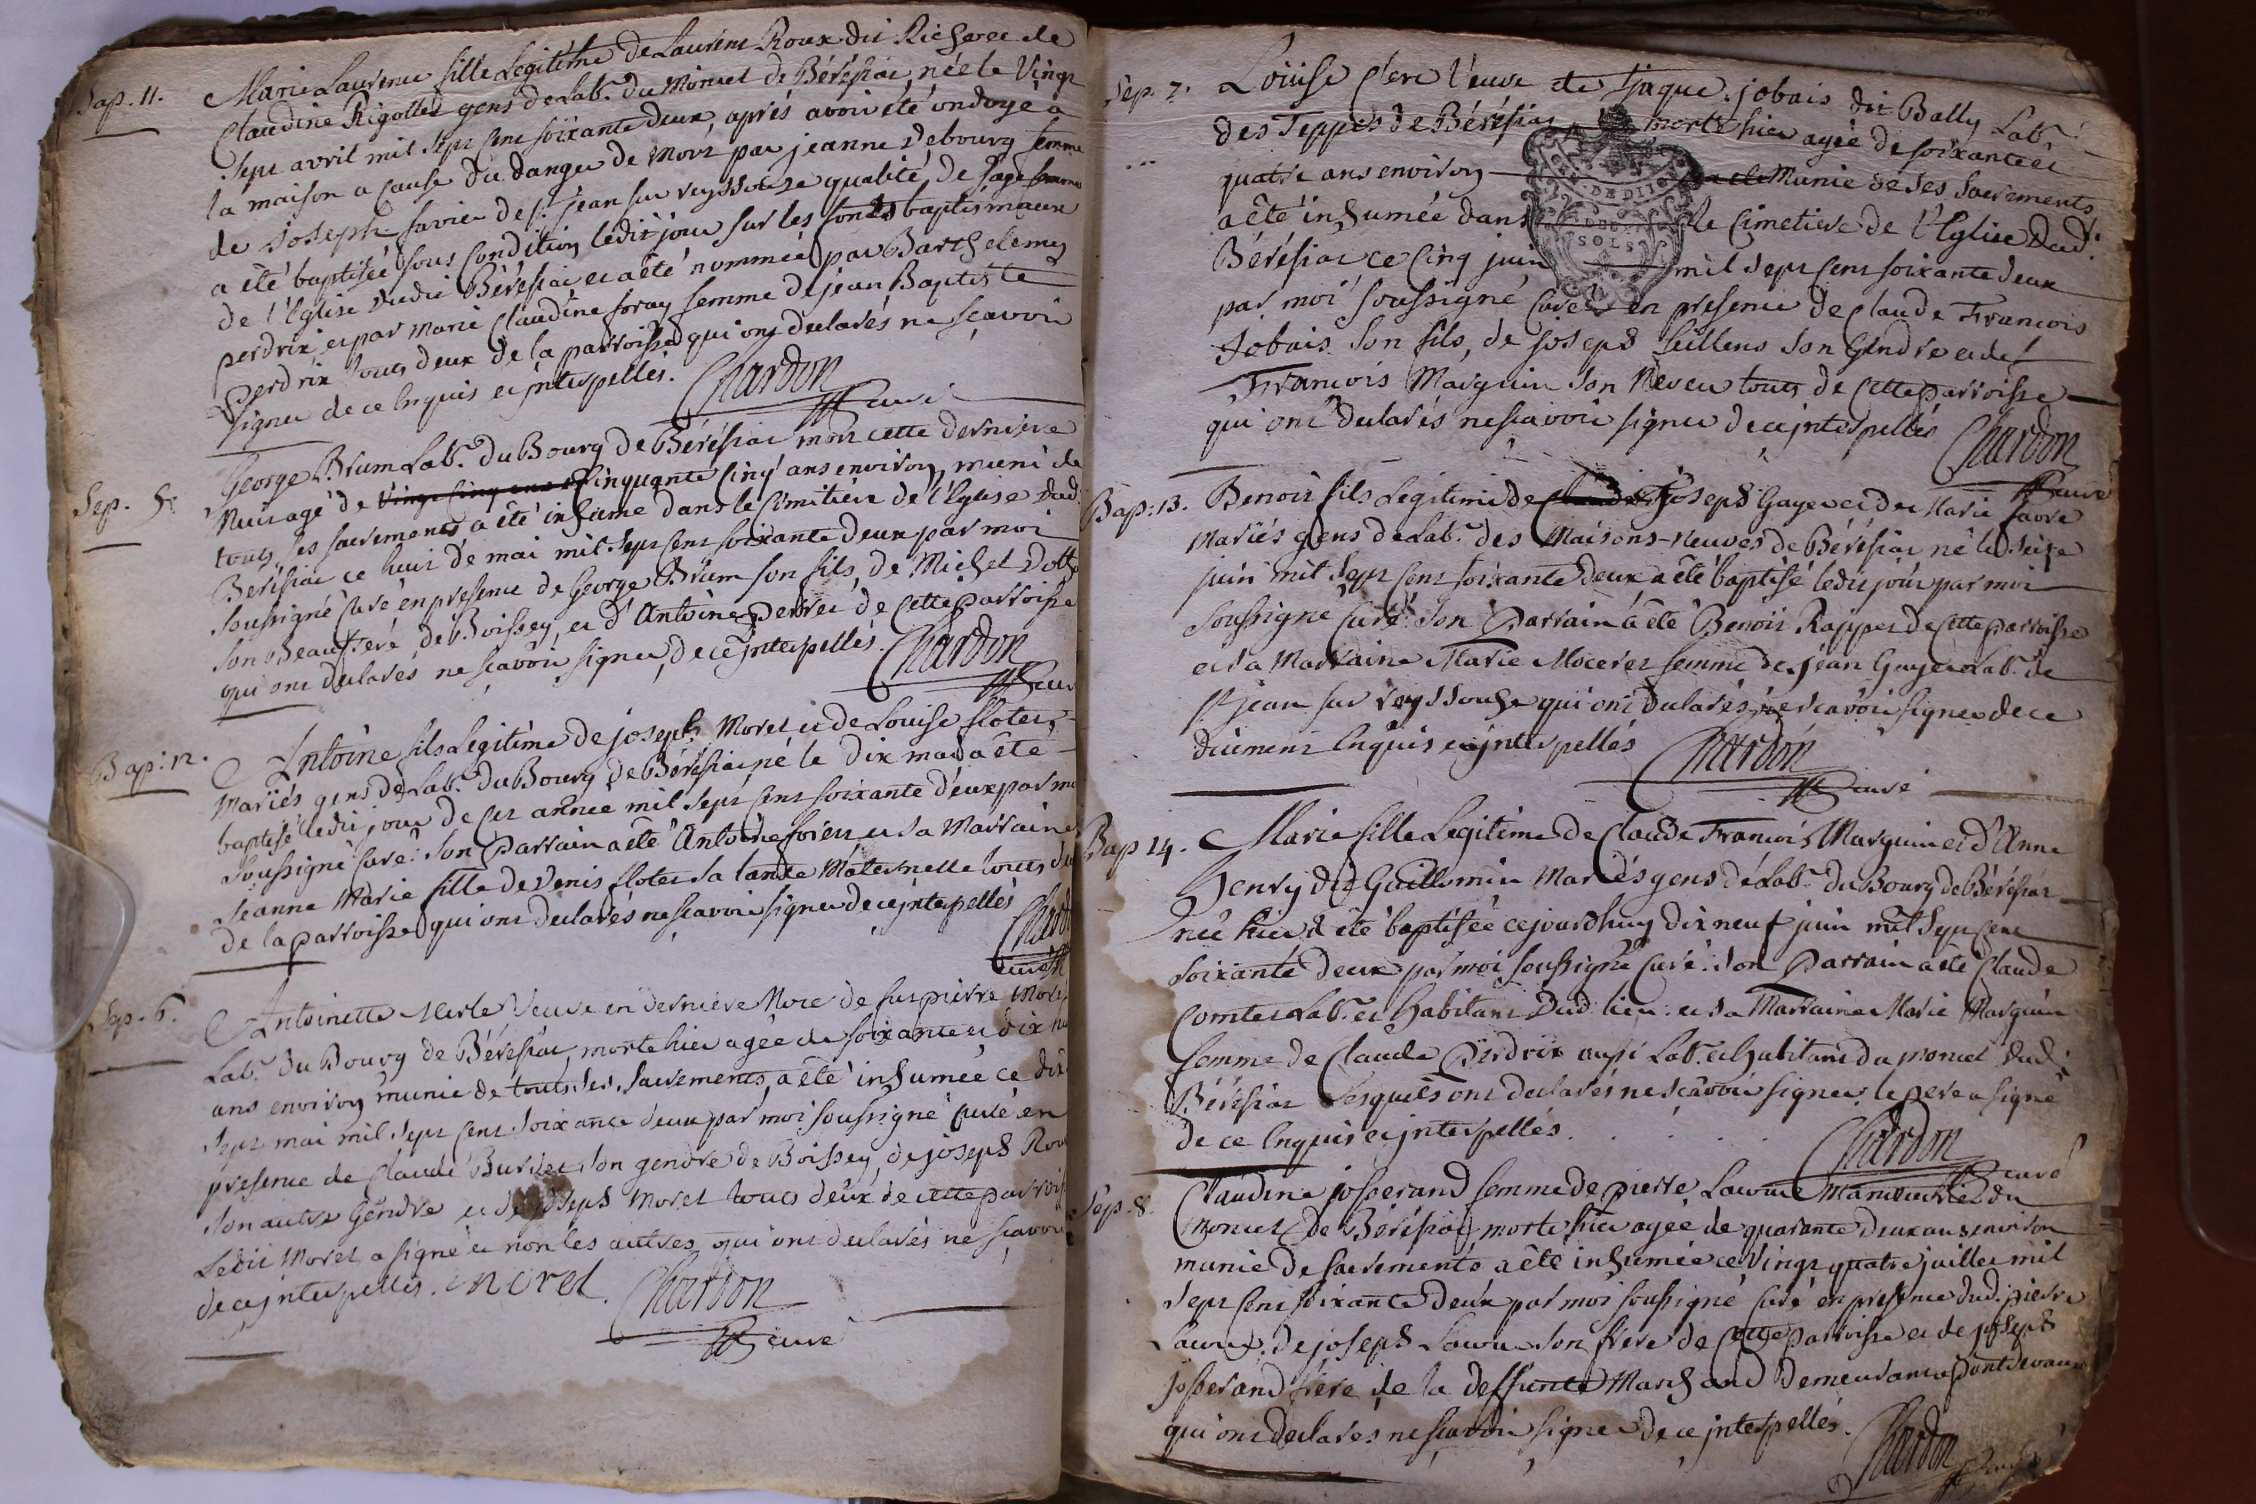 Bap. 11.
Marie Laurence fille Legitime de Laurent Roux dit Richerer de
Claudine Rigollet gens de Lab.r du Moncel de Béréfiat, née le Vingt
Sept avril mil Sept Cent Soixante deux, aprés avoir été ondoyé à
la maison a Cause du danger de Mort par jeanne debourg femme
de Joseph favier de S.t jean sur reyssouze qualité de Sage femme
a été baptisée sous Condition ledit jour sur les fonds baptismaux
de l'Eglise dudit Béréfiat et a été nommée par Barthelemy
perdrix et par Marie Claudine foray femme de jean Baptiste
Perdrix touts deux de la parroisse qui ont declarés ne sçavoir
signer de ce Enquis et jnterpellés. Chardon
curé
Sep. 5.
George Brum Lab.r du Bourg de Béréfiat mort cette derniere
Nuit agé de Cinquante Cinq ans environ, muni de
touts ses sacrements a été inhumé dans le Cimitiere de l'Eglise dud.
Béréfiat ce huit de mai mil Sept Cent Soixante deux par moi
Soussigné Curé en presence de George Brum son fils, de Michel
son Beaufrere de Boissey, et d'Antoine perret de Cette parroisse
qui ont declarés ne scavoir signer de ce jnterpellés. Chardon
curé
Bap. 12.
Antoine fils Legitime de joseph Morel et de Louise flotet
Mariés gens de Lab.r du Bourg de Béréfiat né le dix mai a été
baptisé ledit jour de Cet année mil Sept Cent Soixante deux par moi
Soussigné Curé. Son Parrain a été Antoine et sa Marraine
Jeanne Marie fille de Denis flotet sa tante Maternelle touts
de la Parroisse qui ont declarés ne scavoir signer de ce jnterpellés
Chardon
curé
Sep. 6.
Antoinette Merle Veuve en derniere Noce de fut pierre Morel
Lab.r du Bourg de Béréfiat, morte hier agée de soixante et dix
ans environ munie de touts ses sacrements, a été inhumée ce dix
Sept mai mil Sept Cent Soixante deux par moi soussigné Curé en
presence de Claude son gendre de Boissey, de joseph
son autre Gendre et de joseph Morel touts deux de cette parroisse
Ledit Morel a signé et non les autres qui ont declarés ne sçavoir
de ce jnterpellés. morel. Chardon
curé
Sep. 7.
Louise Clerc Veuve de Jaque jobais dit Bally Lab.r
des Teppes de Béréfiat morte hier agée de soixante et
quatre ans environ Munie de ses Sacrements
a été inhumée dans le Cimetiere de l'Eglise Dud.t
Béréfiat ce Cinq juin mil Sept Cent Soixante deux
par moi soussigné Curé en presence de Claude François
Jobais son fils, de joseph son Gendre et de
François Marguin son Neveu touts de Cette parroisse
qui ont declarés ne scavoir signer de ce jnterpellés Chardon
curé
Bap. 13.
Benoit fils Legitime de joseph Gayet et de Marie favre
Mariés gens de Lab.r des Maisons-neuves de Béréfiat né le seize
juin mil Sept Cent Soixante deux a été baptisé ledit jour par moi
Soussigné Curé. Son Parrain a été Benoit Rapper de Cette parroisse
et sa Marraine Marie femme de jean Gayet Lab.r de
S.t jean sur reyssouse qui ont declarés ne scavoir signer de ce
duement Enquis et jnterpellés Chardon
curé
Bap 14.
Marie fille Legitime de Claude François Marguin et d'Anne
Henry dit Guillomin Mariés gens de Lab.r du Bourg de Béréfiat
née hier a été baptisée cejourdhuy dix neuf juin mil Sept Cent
Soixante deux par moi soussigné Curé. Son Parrain a été Claude
Comtet Lab.r et habitant Dud. lieu et sa Marraine Marie Marguin
femme de Claude Perdrix aussi Lab.r et habitant du moncel dud.
Béréfiat Lesquels ont declarés ne scavoir signer. le pere a signé
de ce Enquis et jnterpellés. Chardon
curé
Sep. 8.
Claudine josserand femme de pierre Manouvrier du
Moncel de Béréfiat morte hier agée de quarante deux ans environ
munie de sacrements a été inhumée ce Vingt quatre juillet mil
Sept Cent Soixante deux par moi soussigné Curé en presence dud. pierre
de joseph son frere de Cette parroisse et de joseph
josserand frere de la deffunte Marchand Demeurant a Pontdevaux
qui ont declarés ne scavoir signer de ce jnterpellés. Chardon
curé